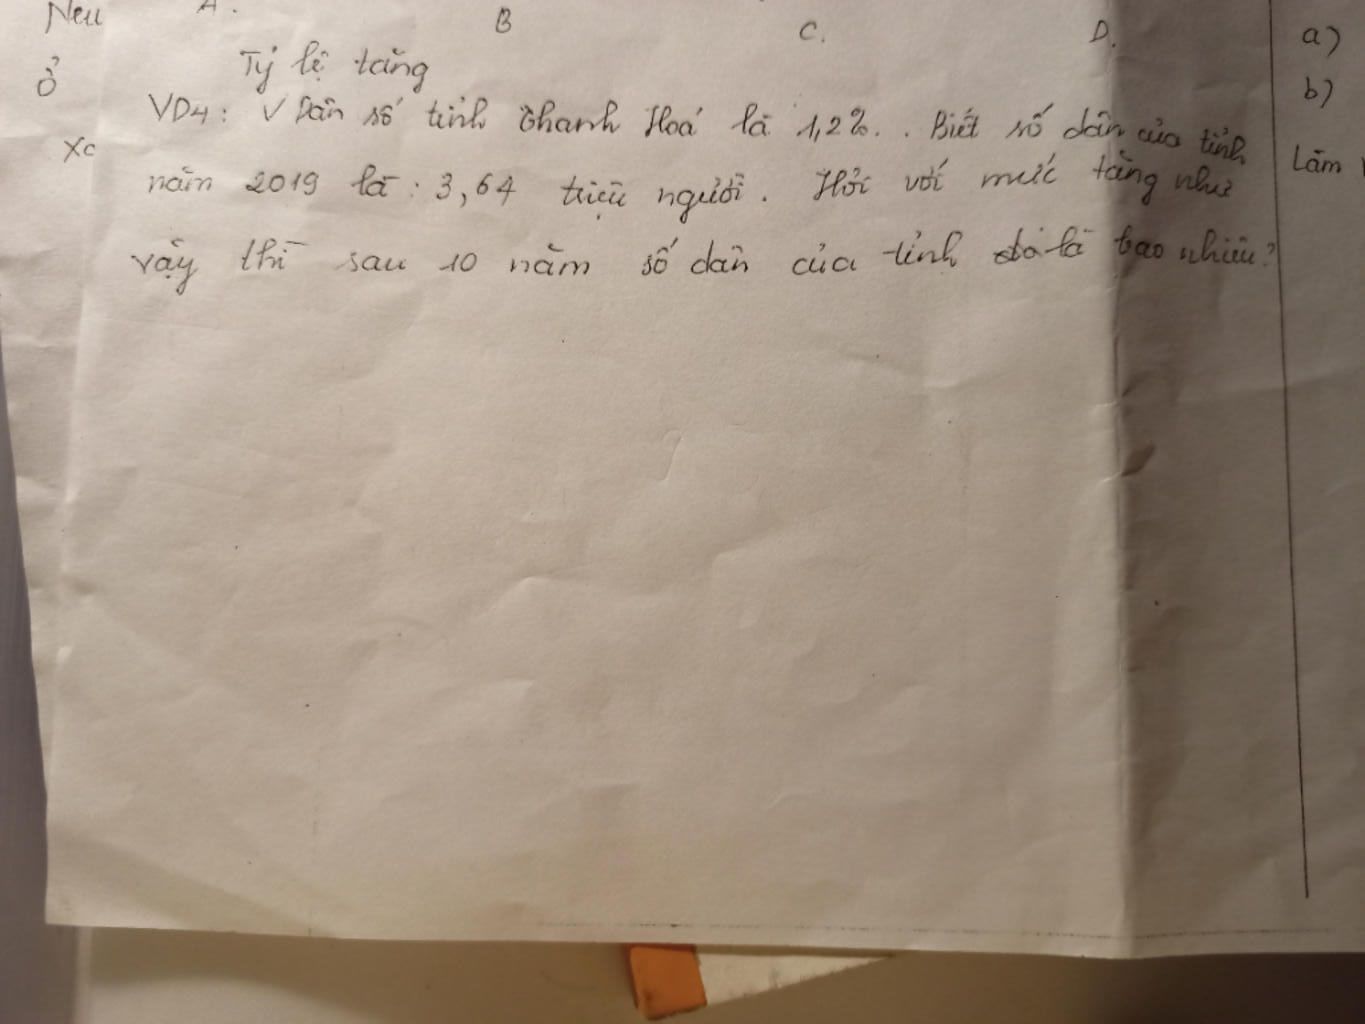 Neu A. B C. D. a)
ổ Tỷ lệ tăng b)
VD4: V Dân số tỉnh Thanh Hoá là 1,2%. . Biết số dân của tỉnh
Xc năm 2019 là: 3,64 triệu người. Hỏi với mức tăng như Làm
vậy thì sau 10 năm số dân của tỉnh đó là bao nhiêu?